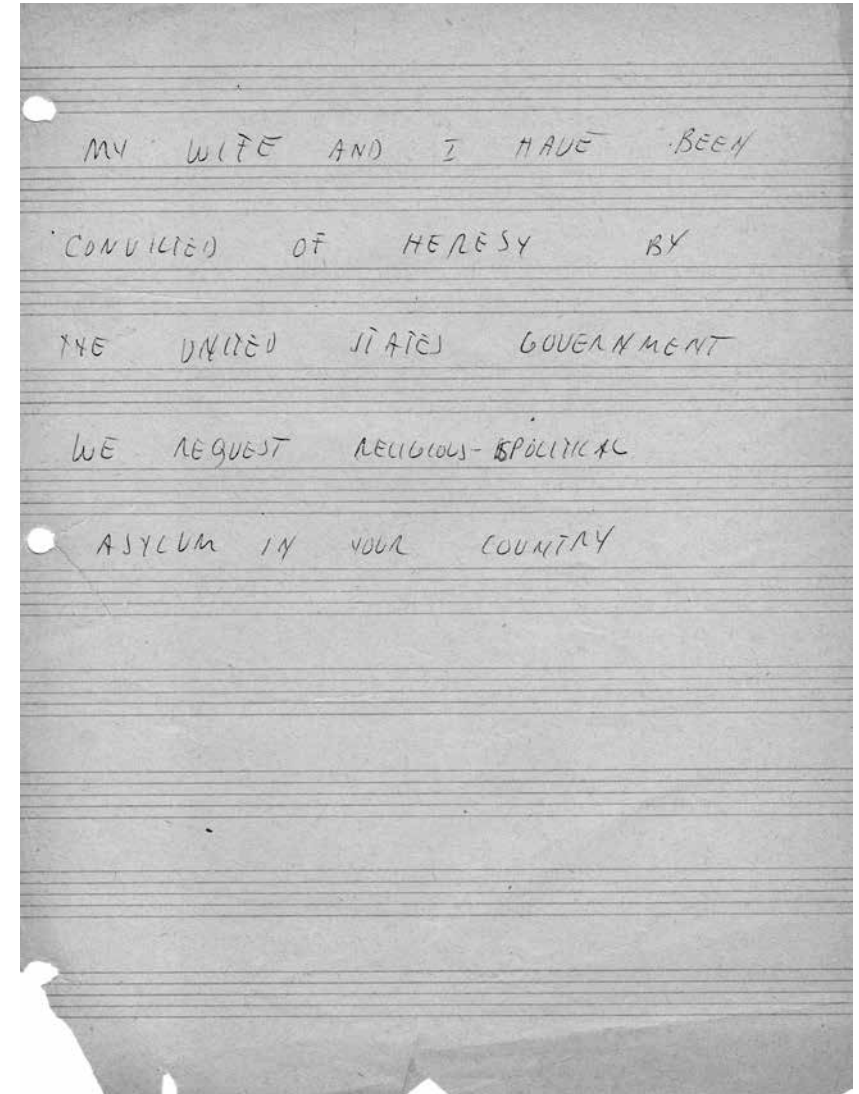 MY WIFE AND I HAVE BEEN
CONVICTED OF HERESY BY
THE UNITED STATES GOVERNMENT
WE REQUEST RELIGIOUS-POLITICAL
ASYLUM IN YOUR COUNTRY